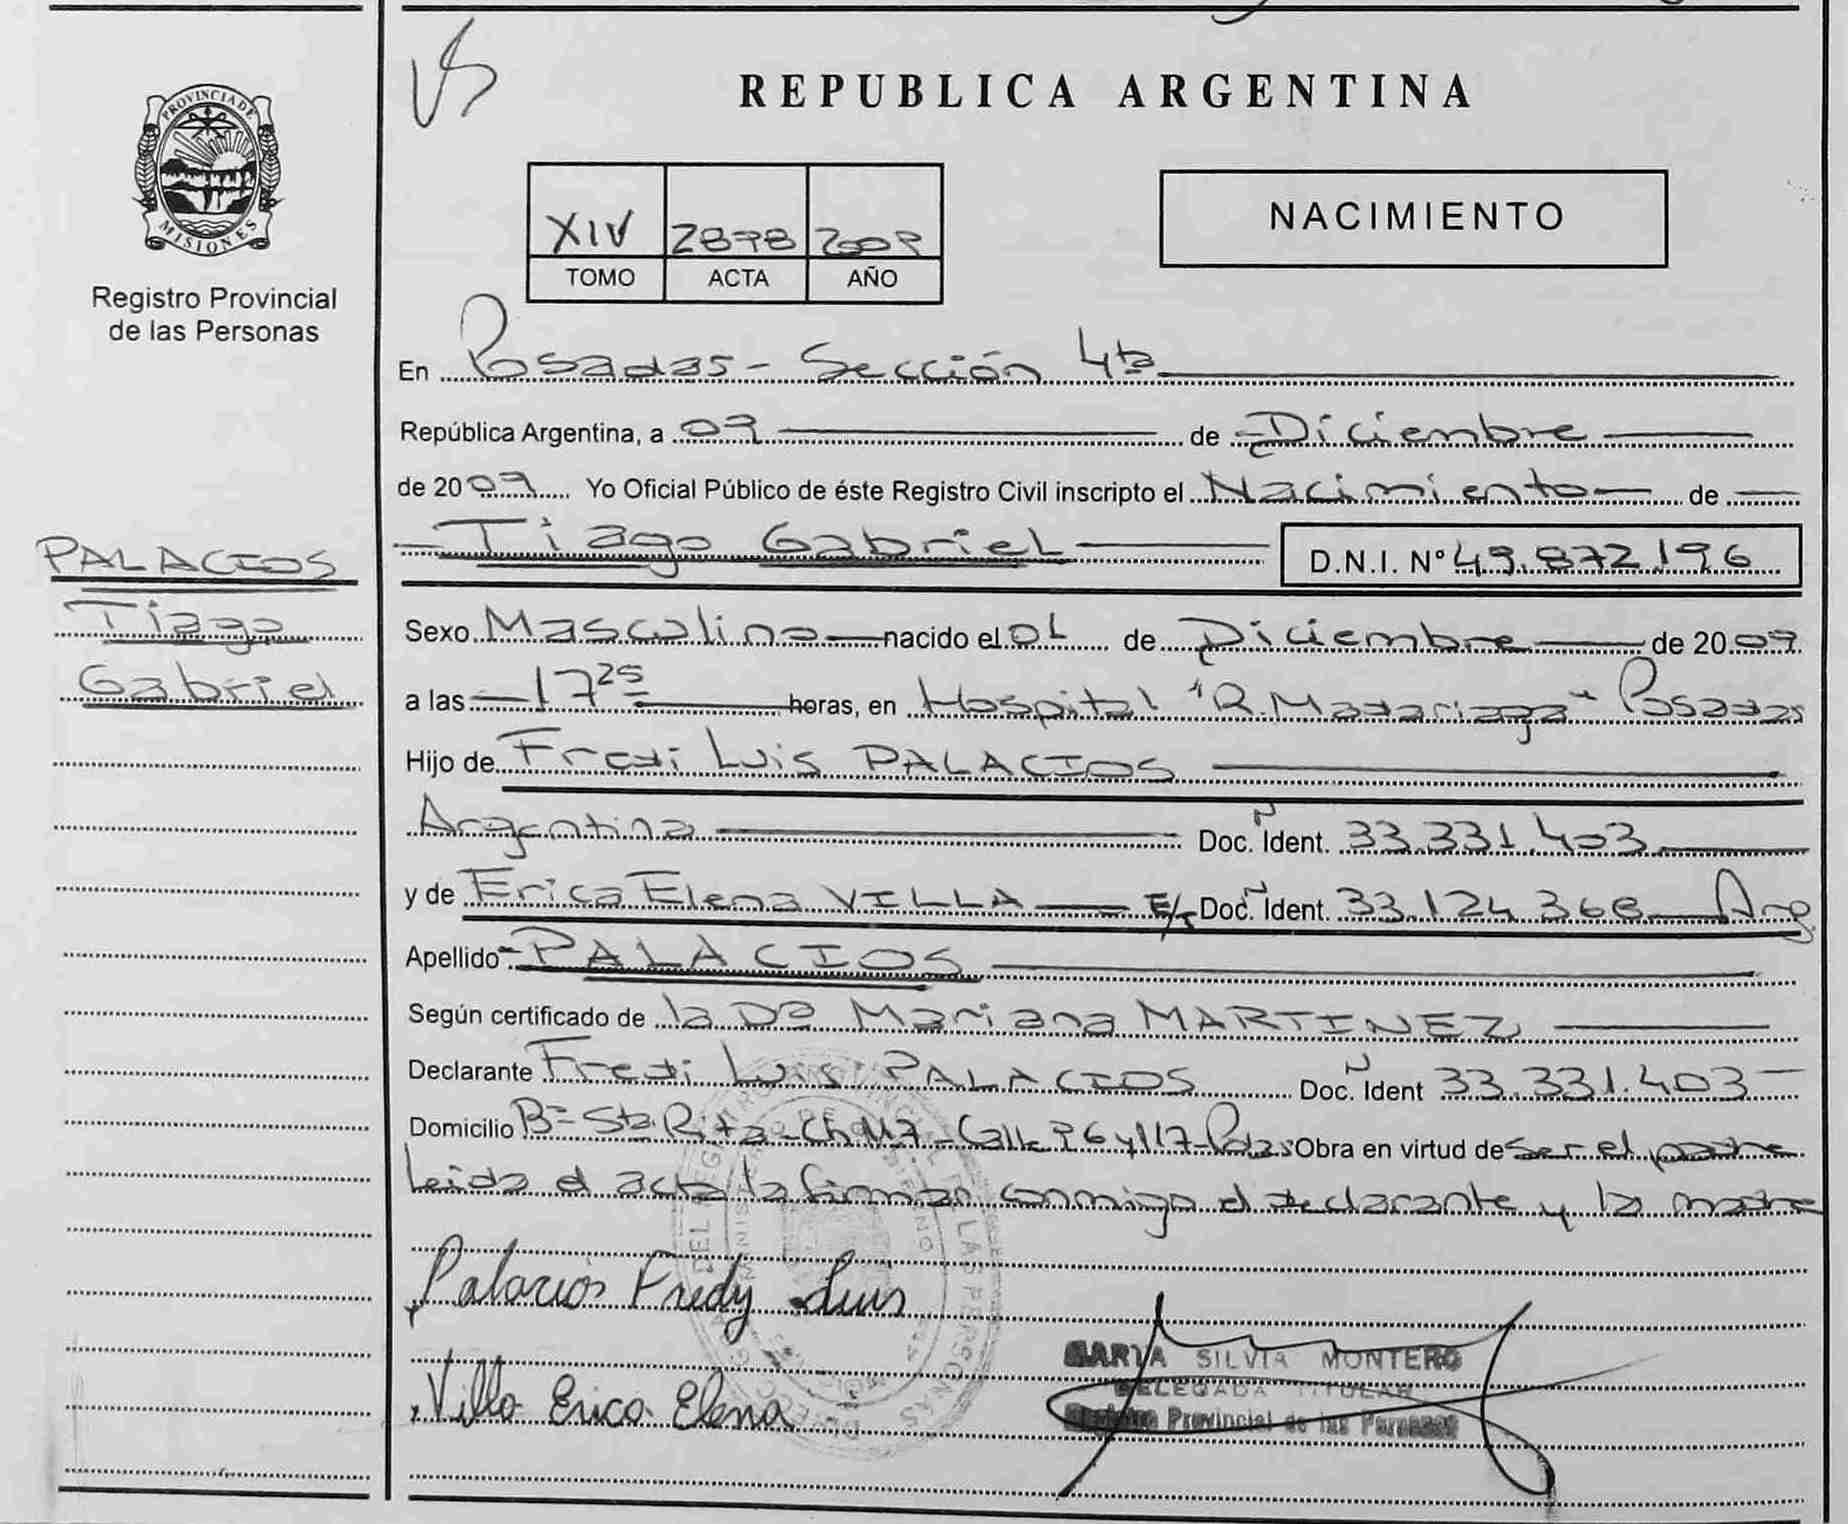 PROVINCIA DE
MISIONES
Registro Provincial
de las Personas
PALACIOS
Tiago
Gabriel
REPUBLICA ARGENTINA
XIV 2878 2009
TOMO ACTA AÑO
NACIMIENTO
En Posadas - Sección 4ta
República Argentina, a 09 de Diciembre
de 2009 Yo Oficial Público de éste Registro Civil inscripto el Nacimiento de
Tiago Gabriel D.N.I. Nº 49.872.196
Sexo Masculino nacido el 01 de Diciembre de 2009
a las 17 25 horas, en Hospital "R. Madariaga" Posadas
Hijo de Fredi Luis PALACIOS
Argentina Doc. Ident. 33.331.403
y de Erica Elena VILLA E/T Doc. Ident. 33.124.368 Arg
Apellido PALACIOS
Según certificado de la Dra Mariana MARTINEZ
Declarante Fredi Luis PALACIOS Doc. Ident 33.331.403
Domicilio Bº Sta. Rita - Ch 117 - Calle 96 y 117 - Pdas Obra en virtud de ser el padre
Leida el acta la firman conmigo el declarante y la madre
Palacios Fredy Luis
Villa Erica Elena
SILVIA MONTERO
DELEGADA TITULAR
Registro Provincial de las Personas